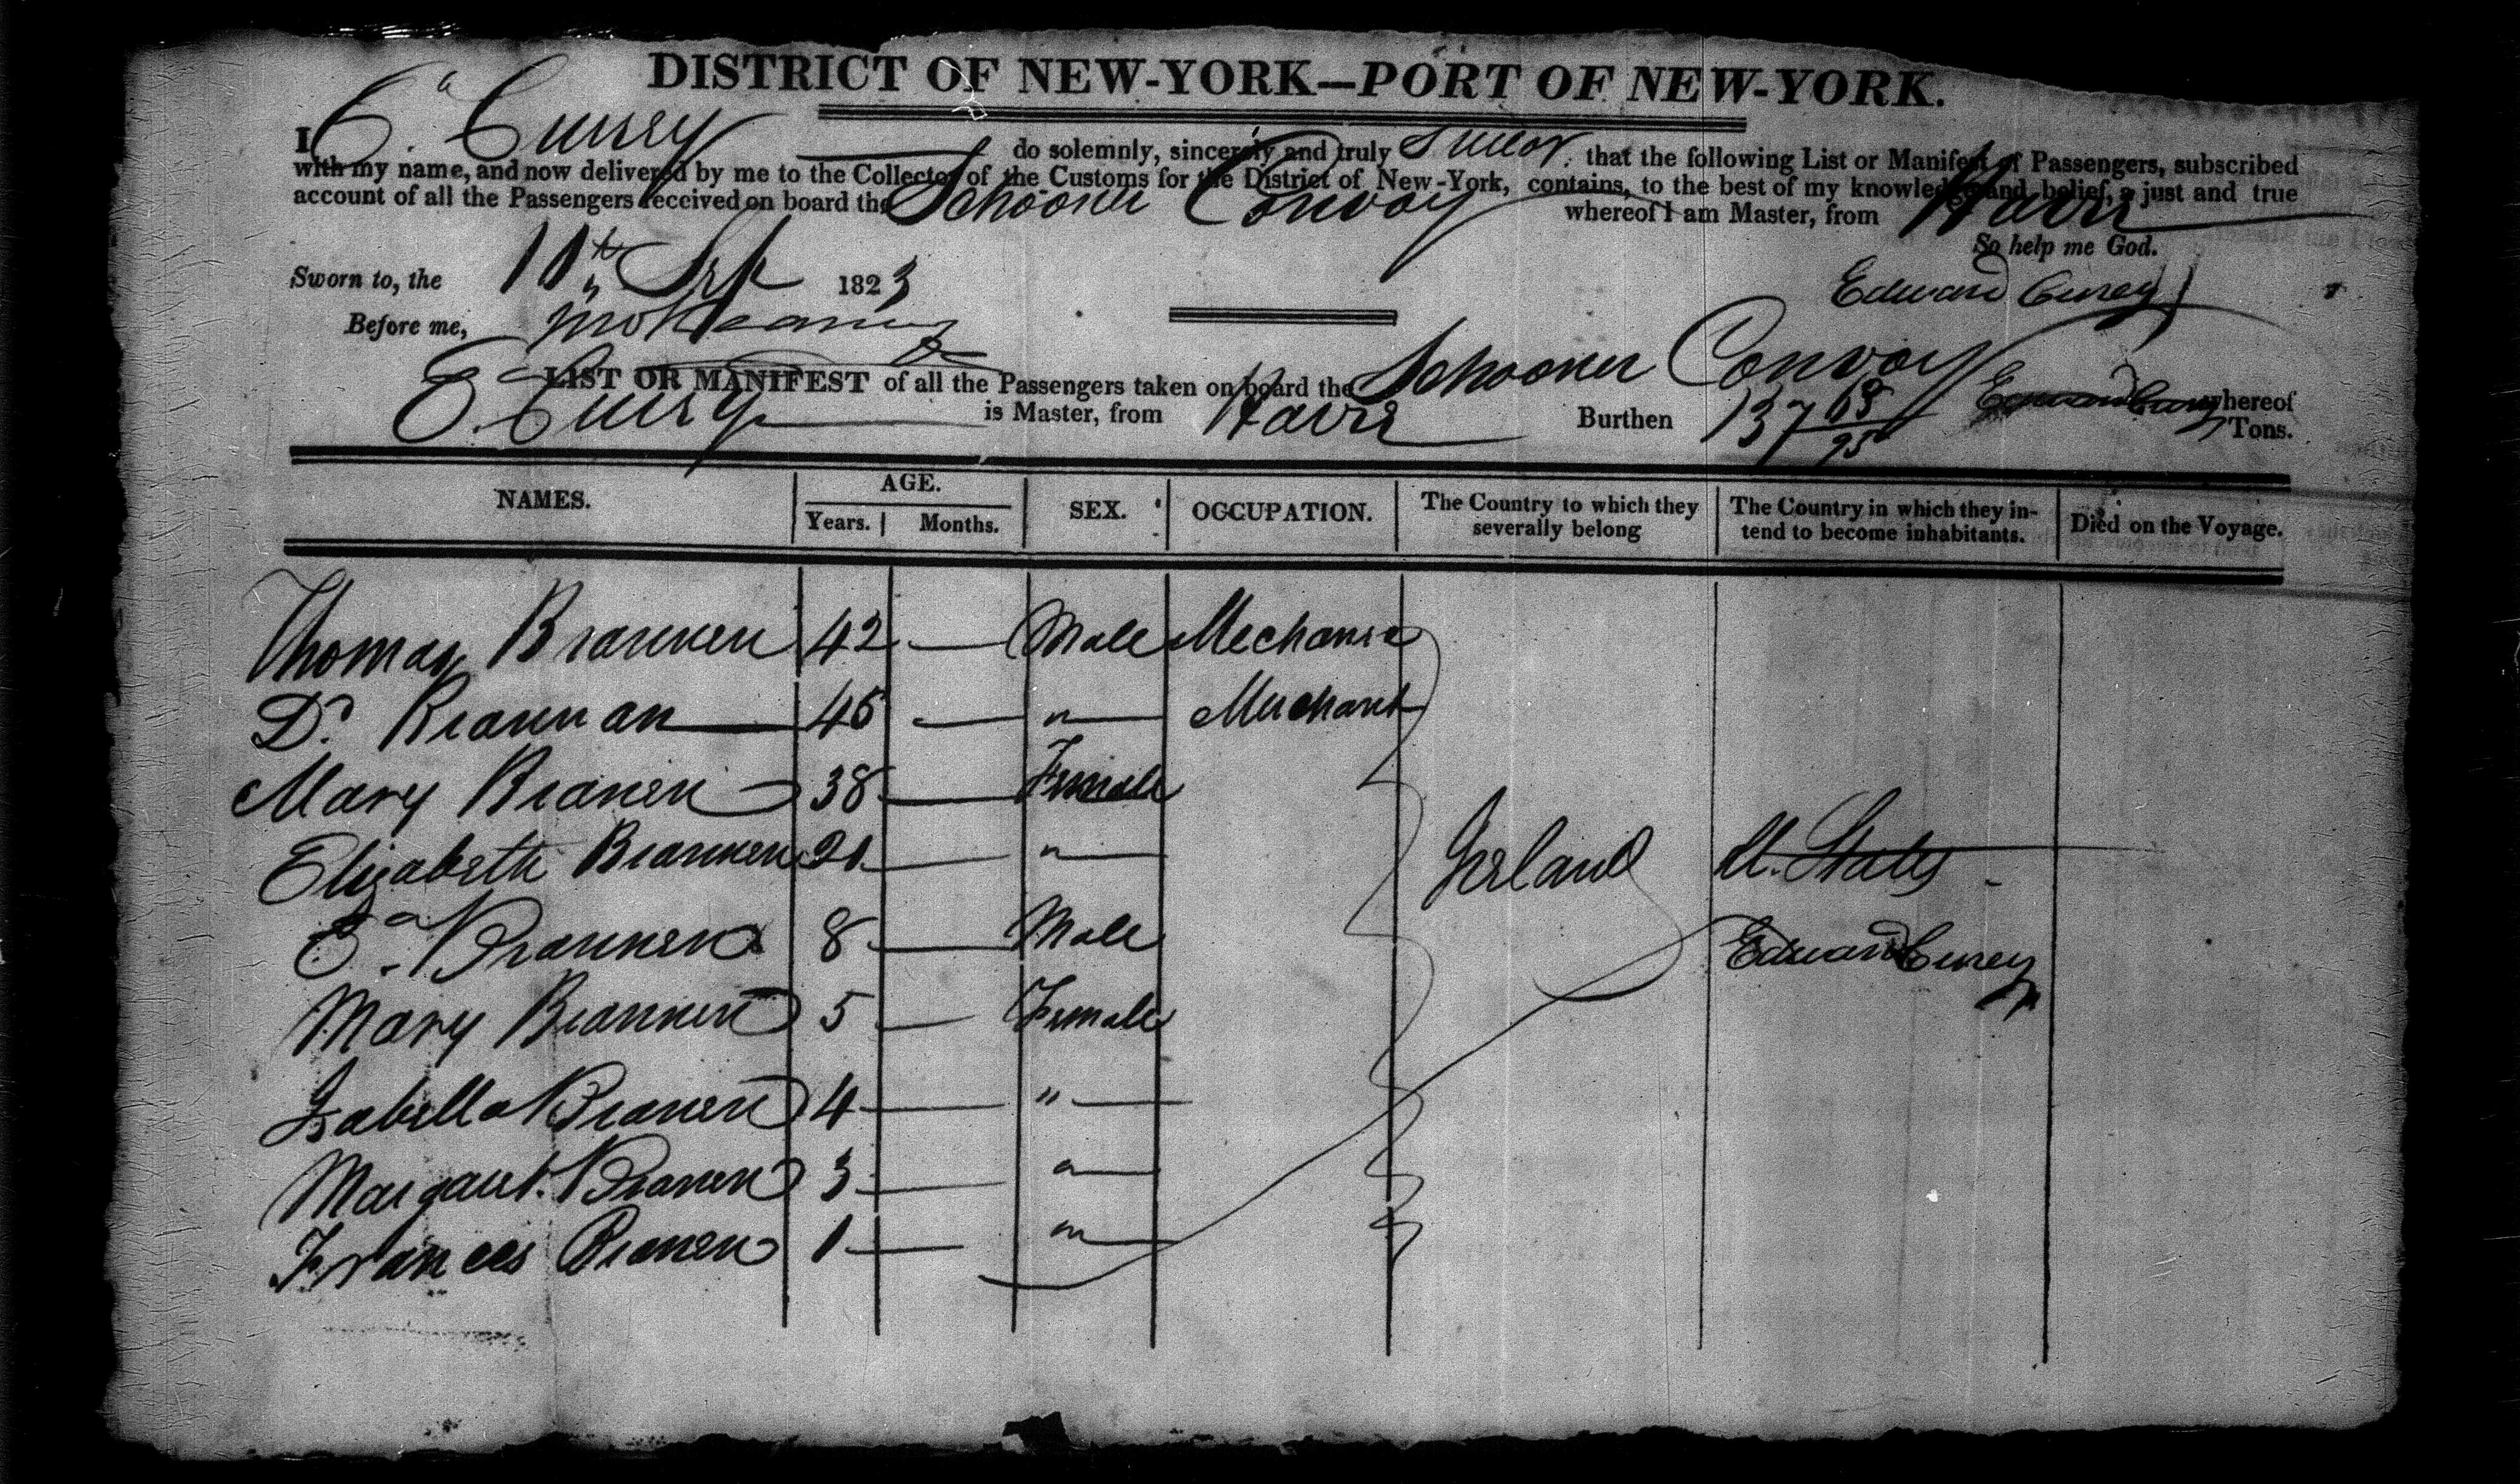 DISTRICT OF NEW-YORK—PORT OF NEW-YORK.
I Ea. Currey do solemnly, sincerely and truly Swear that the following List or Manifest of Passengers, subscribed
with my name, and now delivered by me to the Collector of the Customs for the District of New-York, contains, to the best of my knowledge and belief, a just and true
account of all the Passengers received on board the Schooner Convoy whereof I am Master, from Havre
So help me God.
Sworn to, the 10th Sep 1823
Edward Currey
Before me,
LIST OR MANIFEST of all the Passengers taken on board the Schooner Convoy whereof
Ea. Currey is Master, from Havre Burthen 137 63/95 Tons.
Edward Currey
NAMES. AGE. SEX. OCCUPATION. The Country to which they severally belong The Country in which they intend to become inhabitants. Died on the Voyage.
Years. Months.
Thomas Brannen 42 — Male Mechanic
D. Brannan 45 — " Merchant
Mary Branen 38 — Female
Elizabeth Brannen 21 — "
Ea. Brannen 8 — Male
Mary Brannen 5 — Female
Isabella Branen 4 — "
Margaret Branen 3 — "
Frances Branen 1 — "
Ireland U. States
Edward Currey